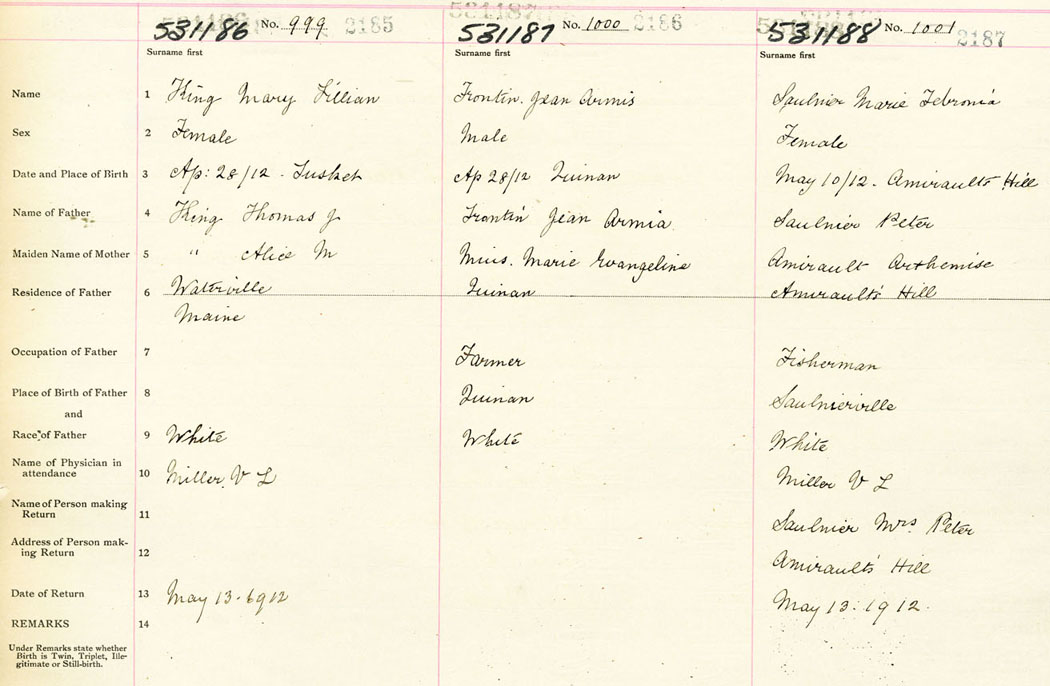 531186 No. 999 2185 531187 No. 1000 2186 531188 No. 1001 2187
Surname first Surname first Surname first
Name 1 King Mary Lillian Frontin Jean Armis Saulnier Marie Zebronia
Sex 2 Female Male Female
Date and Place of Birth 3 Ap: 28/12 - Tusket Ap 28/12 Quinan May 10/12 - Amiraults Hill
Name of Father 4 King Thomas J Frontin Jean Armia Saulnier Peter
Maiden Name of Mother 5 " Alice M Mius. Marie Evangeline Amirault Arthemise
Residence of Father 6 Waterville Quinan Amirault's Hill
Maine
Occupation of Father 7 Farmer Fisherman
Place of Birth of Father 8 Quinan Saulnierville
and
Race of Father 9 White White White
Name of Physician in
attendance 10 Miller V L Miller V L
Name of Person making
Return 11 Saulnier Mrs Peter
Address of Person mak-
ing Return 12 Amirault's Hill
Date of Return 13 May 13 - 1912 May 13 - 1912.
REMARKS 14
Under Remarks state whether
Birth is Twin, Triplet, Ille-
gitimate or Still-birth.